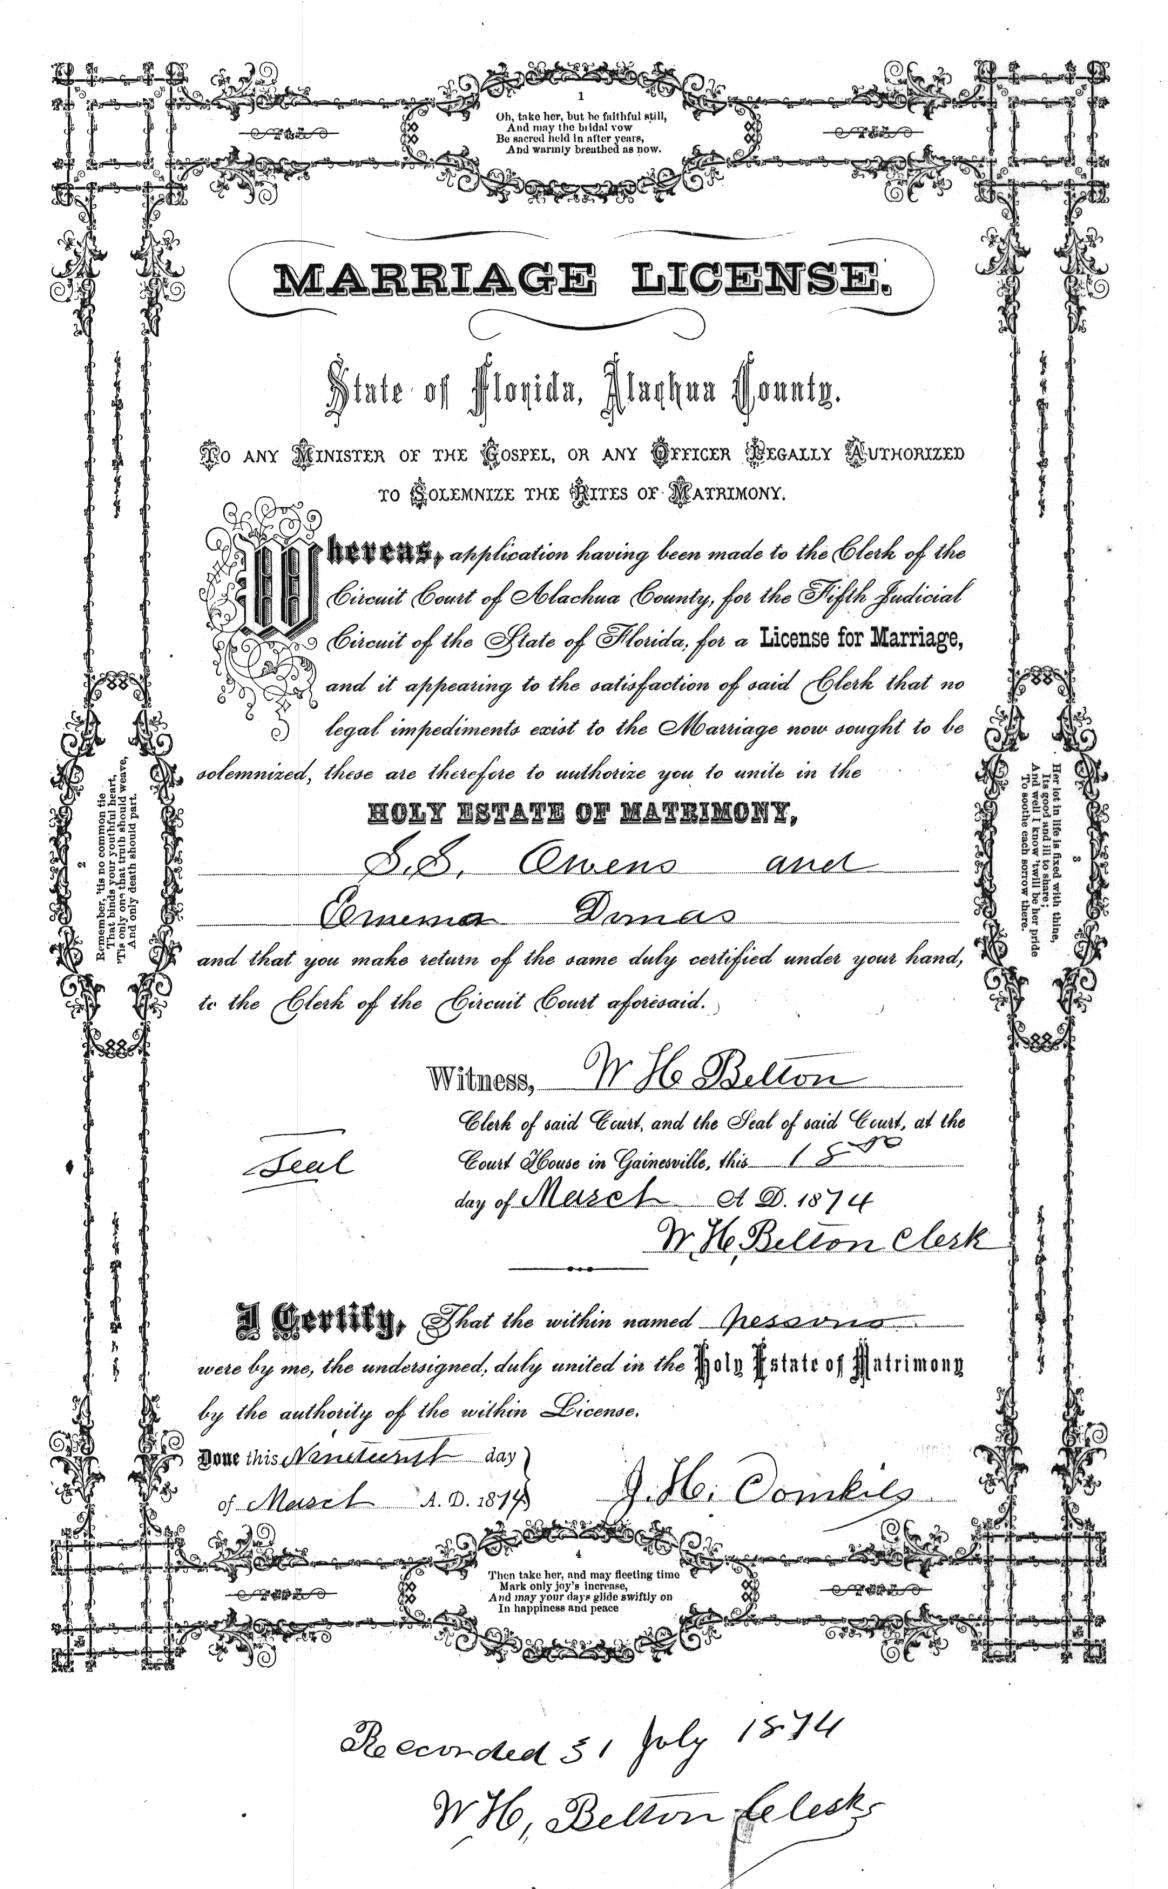 1
Oh, take her, but be faithful still,
And may the bridal vow
Be sacred held in after years,
And warmly breathed as now.
MARRIAGE LICENSE.
State of Florida, Alachua County.
TO ANY MINISTER OF THE GOSPEL, OR ANY OFFICER LEGALLY AUTHORIZED
TO SOLEMNIZE THE RITES OF MATRIMONY.
Whereas, application having been made to the Clerk of the
Circuit Court of Alachua County, for the Fifth Judicial
Circuit of the State of Florida, for a License for Marriage,
and it appearing to the satisfaction of said Clerk that no
legal impediments exist to the Marriage now sought to be
solemnized, these are therefore to authorize you to unite in the
HOLY ESTATE OF MATRIMONY,
S.S. Owens and
Emema Dimas
and that you make return of the same duly certified under your hand,
to the Clerk of the Circuit Court aforesaid.
2
Remember, 'tis no common tie
That binds your youthful heart,
'Tis only one that truth should weave,
And only death should part.
3
Her lot in life is fixed with thine,
Its good and ill to share;
And well I know 'twill be her pride
To soothe each sorrow there.
Witness, W H Belton
Clerk of said Court, and the Seal of said Court, at the
Seal
Court House in Gainesville, this 18th
day of March A. D. 1874
W. H. Belton Clerk
I Certify, That the within named persons
were by me, the undersigned, duly united in the Holy Estate of Matrimony
by the authority of the within License.
Done this day
of March A. D. 1874
J. H.
4
Then take her, and may fleeting time
Mark only joy's increase,
And may your days glide swiftly on
In happiness and peace
Recorded 31 July 1874
W. H. Belton Clerk